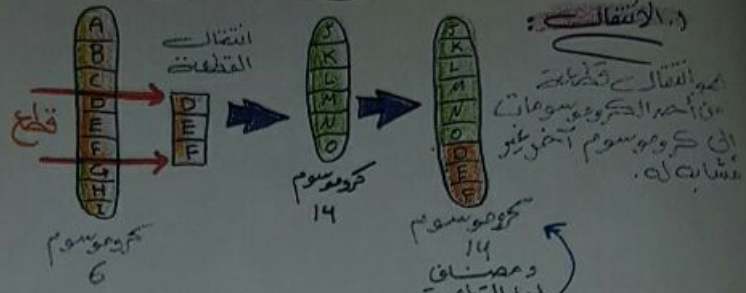 ١. الانتقال:
هو انتقال قطعة
من أحد الكروموسومات
إلى كروموسوم آخر غير
مشابه له.
A
B
C
D
E
F
G
H
I
قطع
كروموسوم
6
انتقال
القطعة
D
E
F
J
K
L
M
N
O
كروموسوم
14
J
K
L
M
N
O
D
E
F
كروموسوم
14